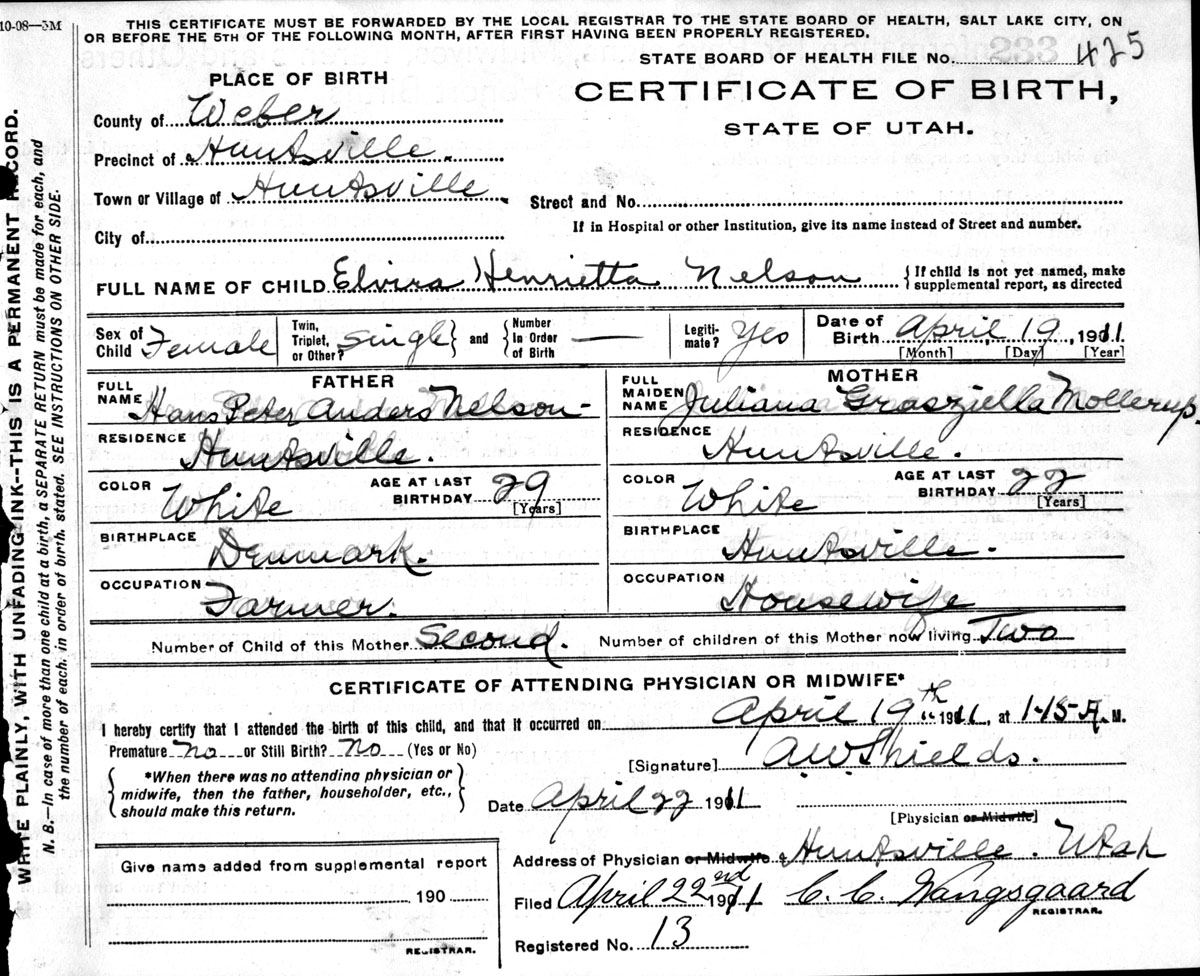 10-08—3M
THIS CERTIFICATE MUST BE FORWARDED BY THE LOCAL REGISTRAR TO THE STATE BOARD OF HEALTH, SALT LAKE CITY, ON
OR BEFORE THE 5TH OF THE FOLLOWING MONTH, AFTER FIRST HAVING BEEN PROPERLY REGISTERED.
STATE BOARD OF HEALTH FILE No. 425
PLACE OF BIRTH
CERTIFICATE OF BIRTH,
STATE OF UTAH.
County of Weber
Precinct of Huntsville.
Town or Village of Huntsville
Street and No.
City of
If in Hospital or other Institution, give its name instead of Street and number.
FULL NAME OF CHILD Elvira Henrietta Nelson {If child is not yet named, make
supplemental report, as directed
Sex of Child Female
Twin, Triplet, or Other? Single } and { Number In Order of Birth —
Legitimate? Yes
Date of Birth April, 19, 1911.
[Month] [Day] [Year]
FATHER
FULL NAME Hans Peter Anders Nelson-
RESIDENCE Huntsville.
COLOR White AGE AT LAST BIRTHDAY 29 [Years]
BIRTHPLACE Denmark.
OCCUPATION Farmer.
MOTHER
FULL MAIDEN NAME Juliana Grasziella Mollerup.
RESIDENCE Huntsville.
COLOR White AGE AT LAST BIRTHDAY 22 [Years]
BIRTHPLACE Huntsville.
OCCUPATION Housewife
Number of Child of this Mother Second. Number of children of this Mother now living Two
CERTIFICATE OF ATTENDING PHYSICIAN OR MIDWIFE*
I hereby certify that I attended the birth of this child, and that it occurred on April 19th 1911, at 1-15-A. M.
Premature No or Still Birth? No (Yes or No)
[Signature] A.W. Shields.
{*When there was no attending physician or
midwife, then the father, householder, etc.,
should make this return.}
Date April 22 1911
[Physician or Midwife]
Give name added from supplemental report
190
REGISTRAR.
Address of Physician or Midwife Huntsville. Utah
Filed April 22nd 1911 C. C. Wangsgaard
REGISTRAR.
Registered No. 13
WRITE PLAINLY, WITH UNFADING INK--THIS IS A PERMANENT RECORD.
N. B.—In case of more than one child at a birth, a SEPARATE RETURN must be made for each, and
the number of each, in order of birth, stated. SEE INSTRUCTIONS ON OTHER SIDE.